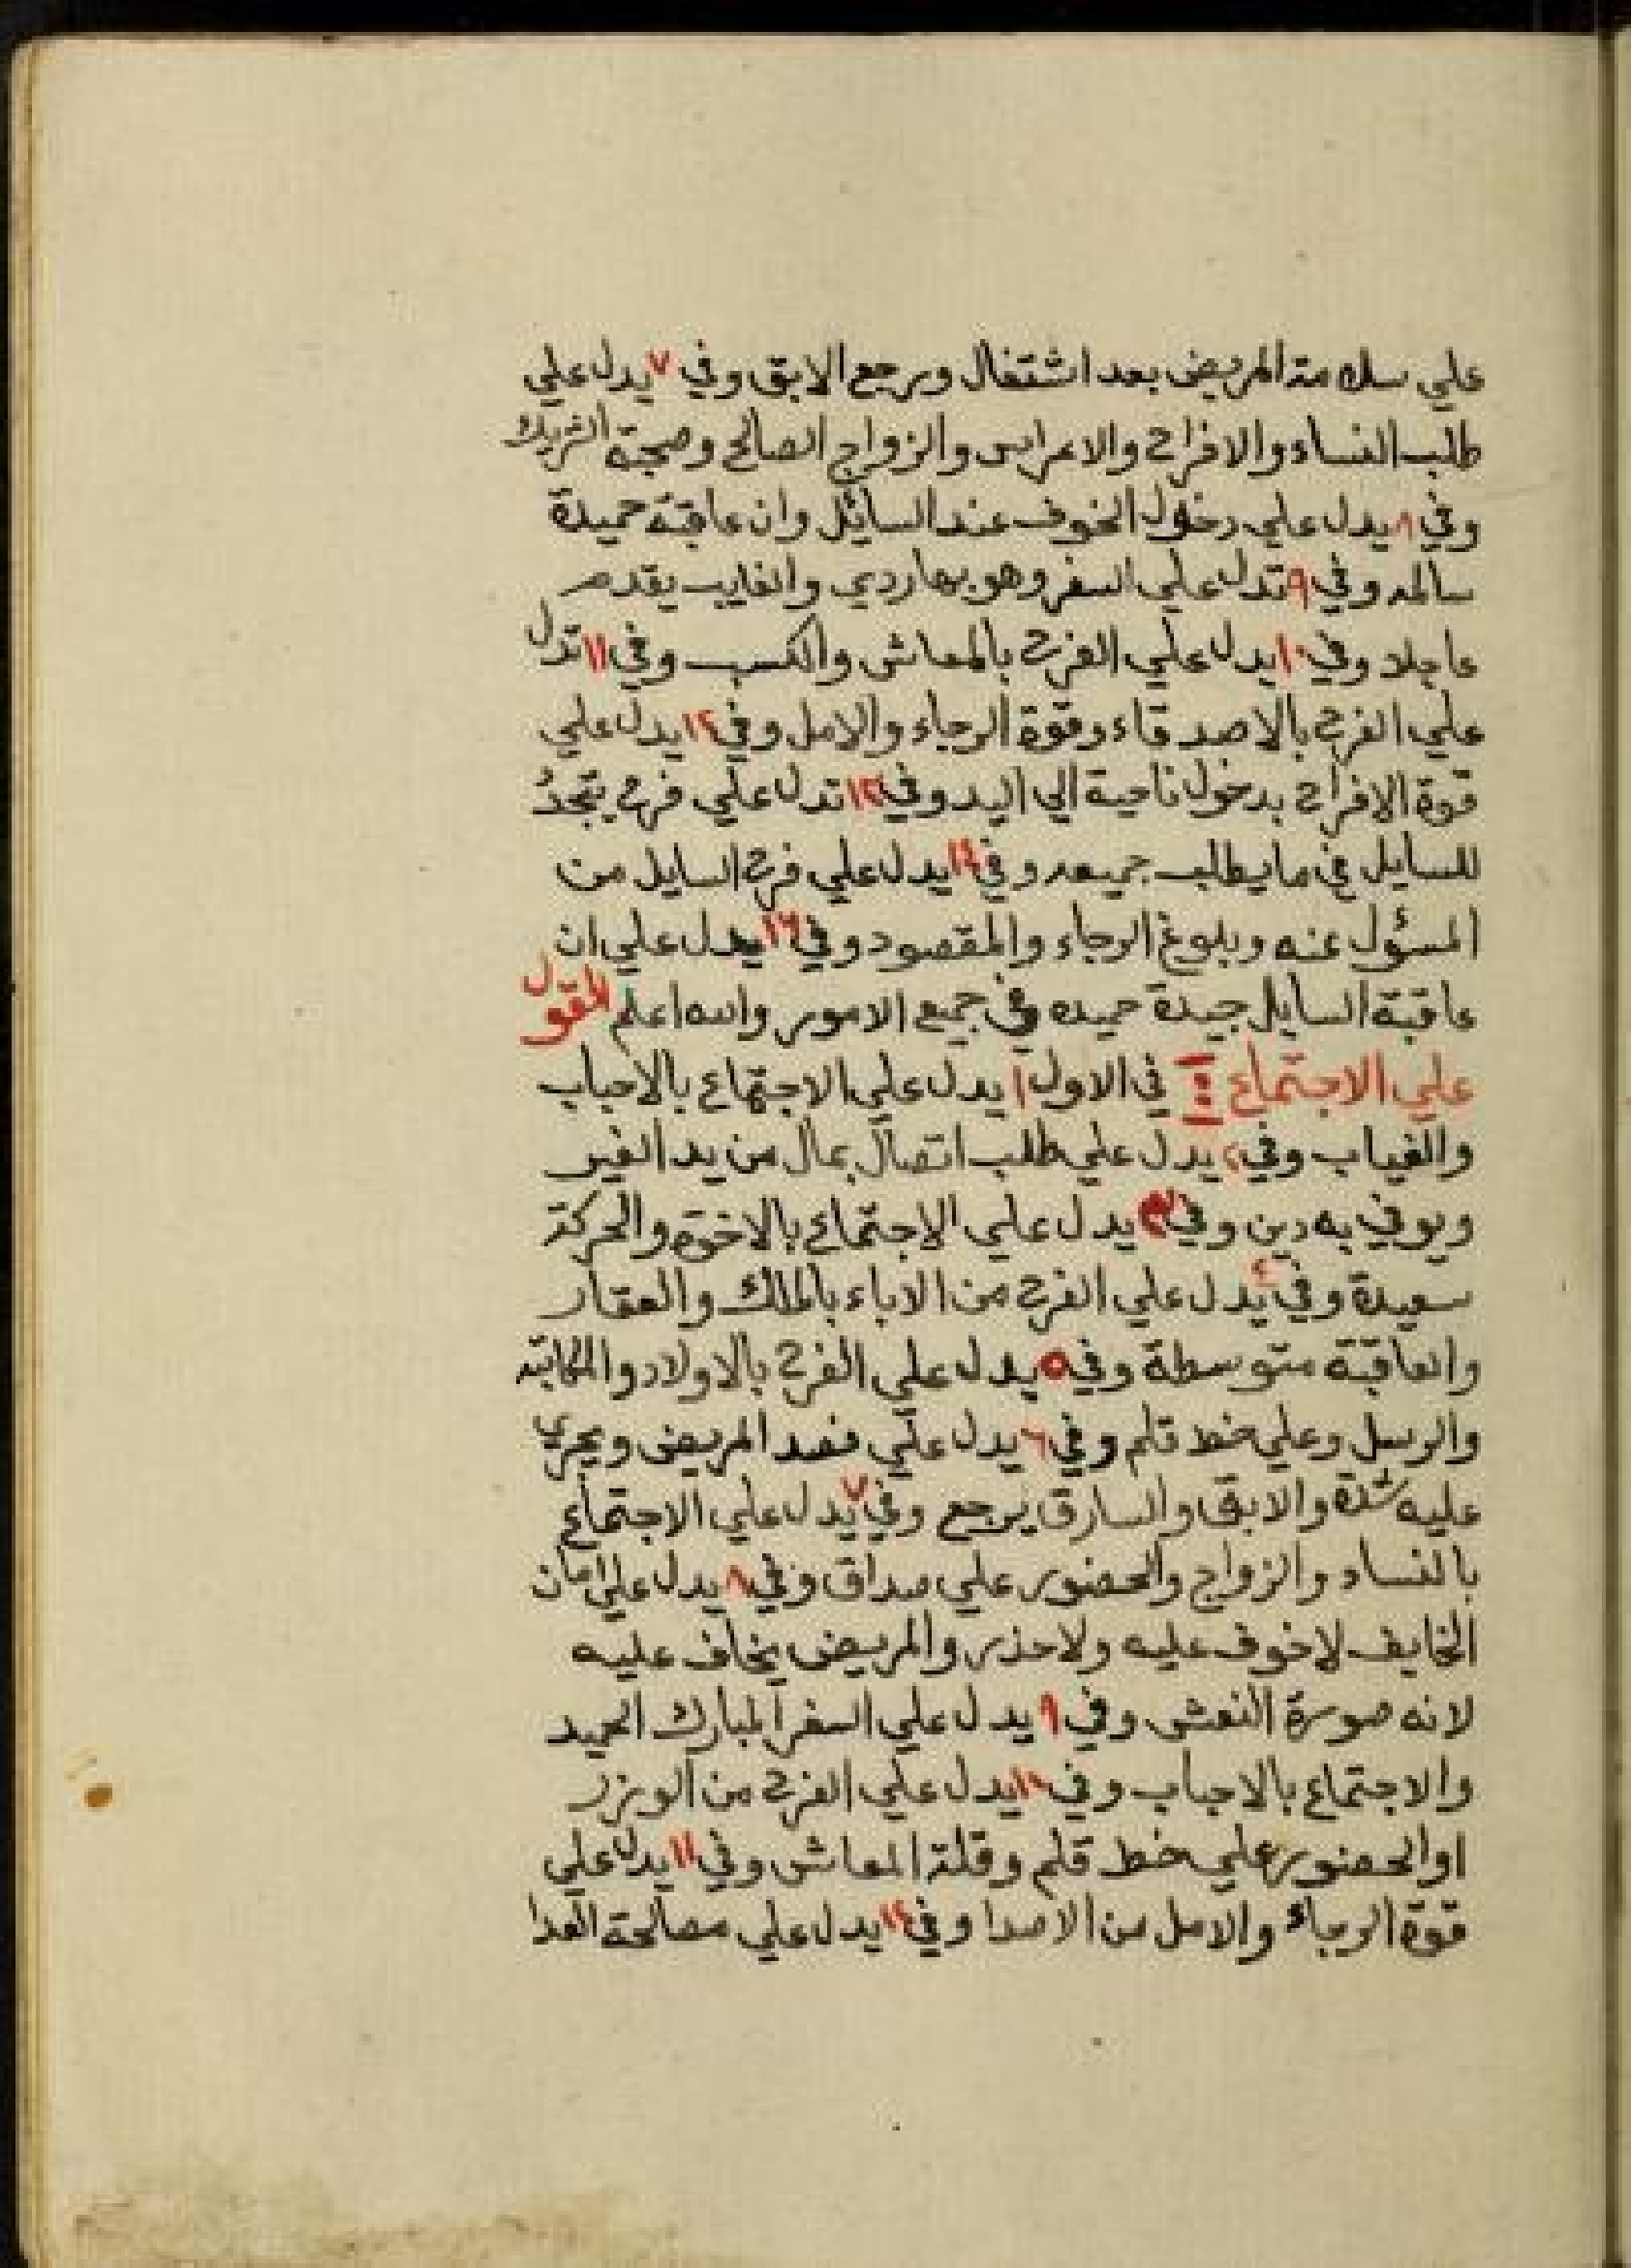 علي سلامة المريض بعد اشتغال ويرجع الابق وفي ٧ يدل علي
طلب النساء والافراح والاعراس والزواج الصالح وصحبة الشريك
وفي ٨ يدل علي دخول الخوف عند السايل وان عاقبته حميدة
سالمه وفي ٩ تدل علي السفر وهو بها ردي والغايب يقدم
عاجلا وفي ١٠ يدل علي الفرح بالمعاش والكسب وفي ١١ تدل
علي الفرح بالاصدقاء وقوة الرجاء والامل وفي ١٢ يدل علي
قوة الافراح بدخول ناحية الي اليد وفي ١٣ تدل علي فرح يتجدد
للسايل في ما يطلب جميعه وفي ١٤ يدل علي فرح السايل من
المسؤل عنه وبلوغ الرجاء والمقصود وفي ١٦ يدل علي ان
عاقبة السايل جيدة حميده في جميع الامور والله اعلم القول
علي الاجتماع في الاول ١ يدل علي الاجتماع بالاحباب
والغياب وفي ٢ يدل علي طلب اتصال بمال من يد الغير
ويوفي به دين وفي ٣ يدل علي الاجتماع بالاخوة والحركة
سعيدة وفي ٤ يدل علي الفرح من الاباء بالملك والعقار
والعاقبة متوسطة وفي ٥ يدل علي الفرح بالاولاد والمكاتبه
والرسل وعلي خط قلم وفي ٦ يدل علي فصد المريض ويجري
عليه شدة والابق والسارق يرجع وفي ٧ يدل علي الاجتماع
بالنساء والزواج والحضور علي صداق وفي ٨ يدل علي امان
الخايف لاخوف عليه ولاحذر والمريض يخاف عليه
لانه صورة النعش وفي ٩ يدل علي السفر المبارك الحميد
والاجتماع بالاحباب وفي ١٠ يدل علي الفرح من الوزر
او الحضور علي خط قلم وقلة المعاش وفي ١١ يدل علي
قوة الرجاء والامل من الاصدا وفي ١٢ يدل علي مصالحة العدا